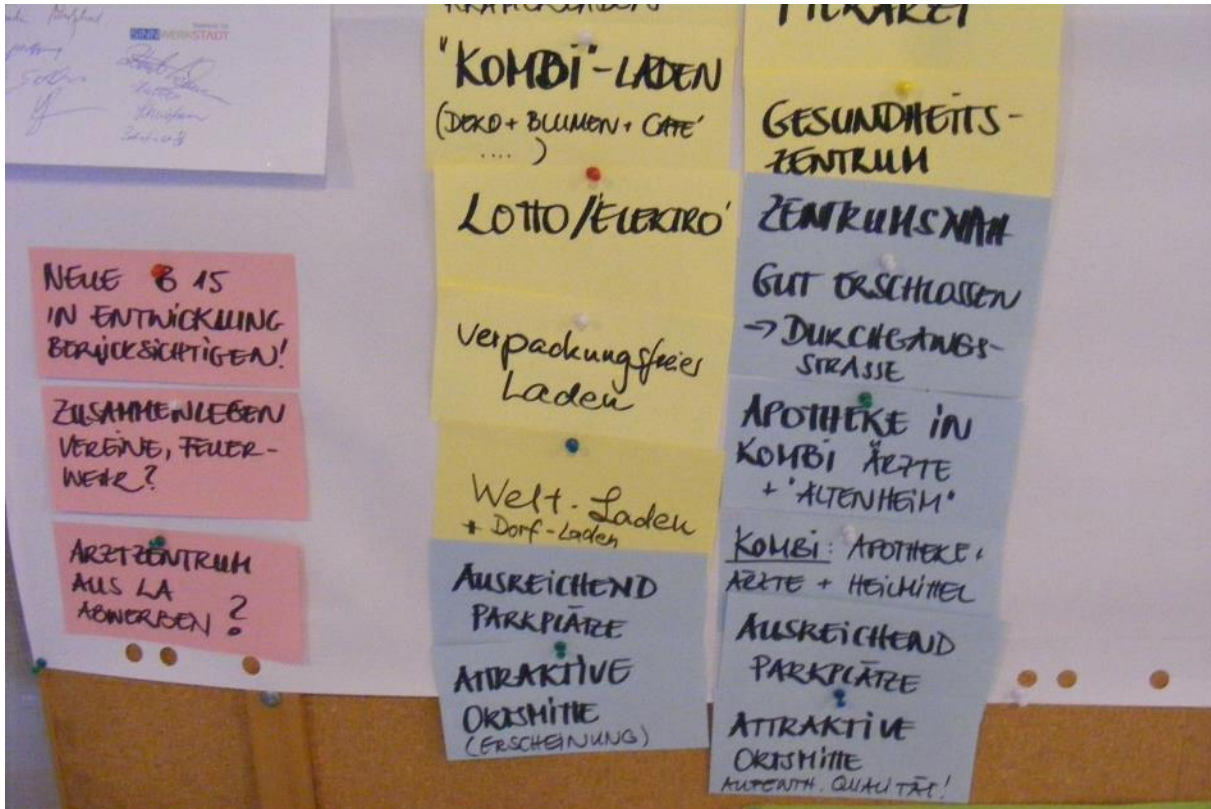 SINNWERKSTADT
NEUE B 15
IN ENTWICKLUNG
BERÜCKSICHTIGEN!
ZUSAMMENLEBEN
VEREINE, FEUER-
WEHR?
ÄRZTZENTRUM
AUS LA
ABWERBEN?
KRAMERLADEN
"KOMBI"-LADEN
(DEKO + BLUMEN + CAFE´
.... )
LOTTO/ELEKTRO
Verpackungsfreier
Laden
Welt-Laden
+ Dorf-Laden
AUSREICHEND
PARKPLÄTZE
ATTRAKTIVE
ORTSMITTE
(ERSCHEINUNG)
TIERARZT
GESUNDHEITS-
ZENTRUM
ZENTRUMSNAH
GUT ERSCHLOSSEN
-> DURCHGANGS-
STRASSE
APOTHEKE IN
KOMBI ÄRZTE
+ "ALTENHEIM"
KOMBI: APOTHEKE +
ÄRZTE + HEILMITTEL
AUSREICHEND
PARKPLÄTZE
ATTRAKTIVE
ORTSMITTE
AUFENTH. QUALITÄT!